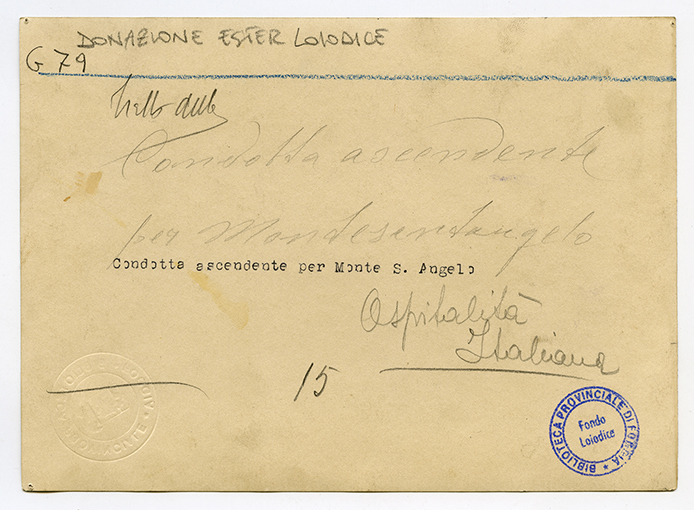 DONAZIONE ESTER LOIODICE
G 79
Condotta ascendente
per Montesantangelo
Condotta ascendente per Monte S. Angelo
Ospitalità
Italiana
15
BIBLIOTECA PROVINCIALE DI FOGGIA *
Fondo
Loiodice